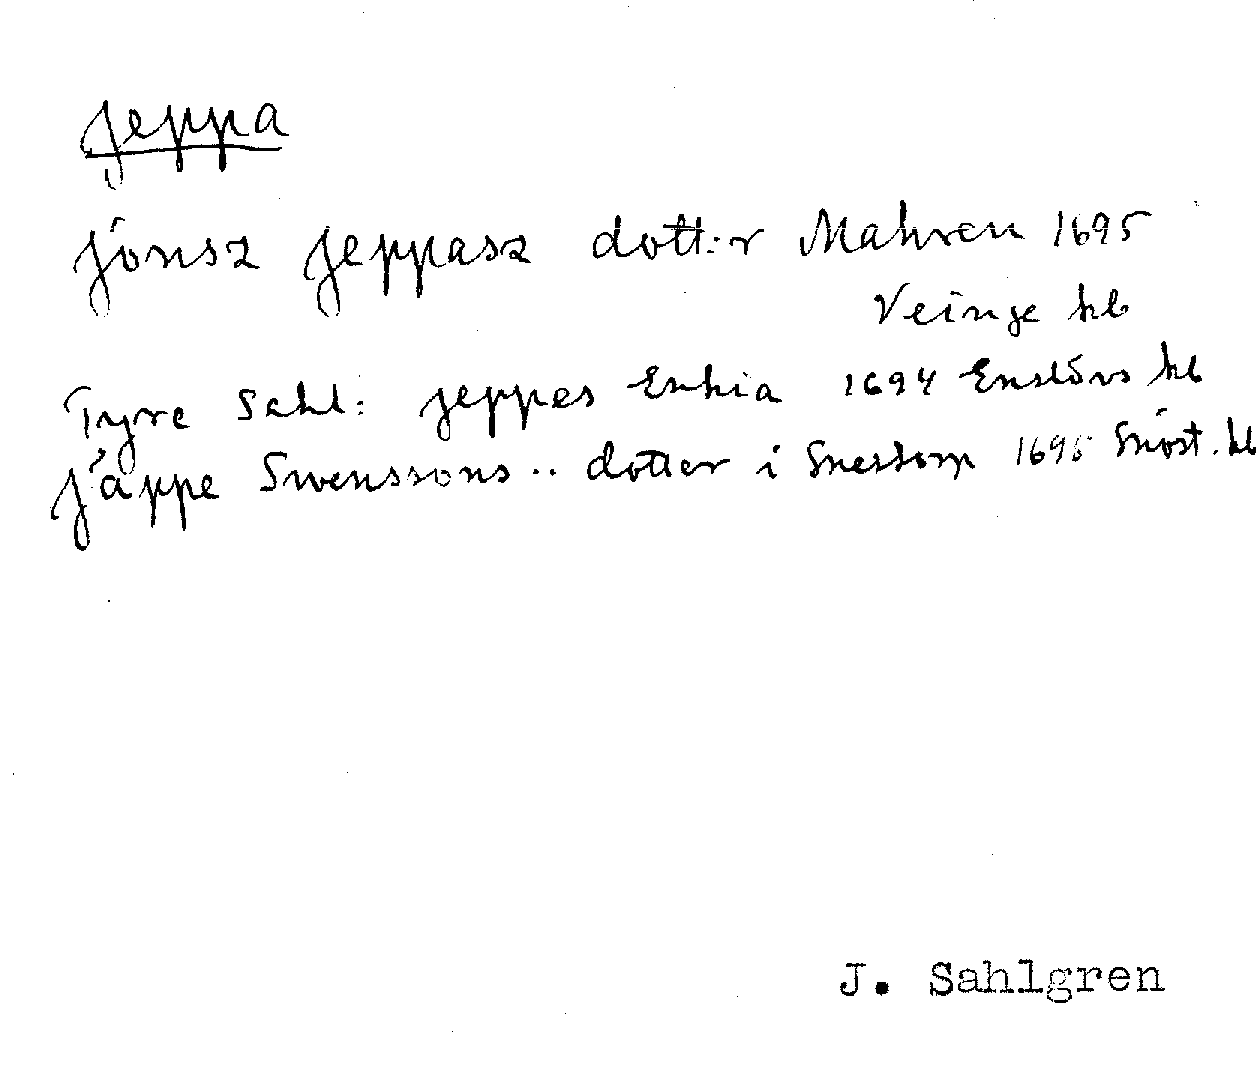 Jeppa
Jönsz Jeppasz dotter Mahren 1695
Veinge kb
Tyre Sahl: Jeppes Enkia 1694 Enslövs kb
Jäppe Swenssons .. dotter i Snestorp 1695 Snöst. kb
J. Sahlgren